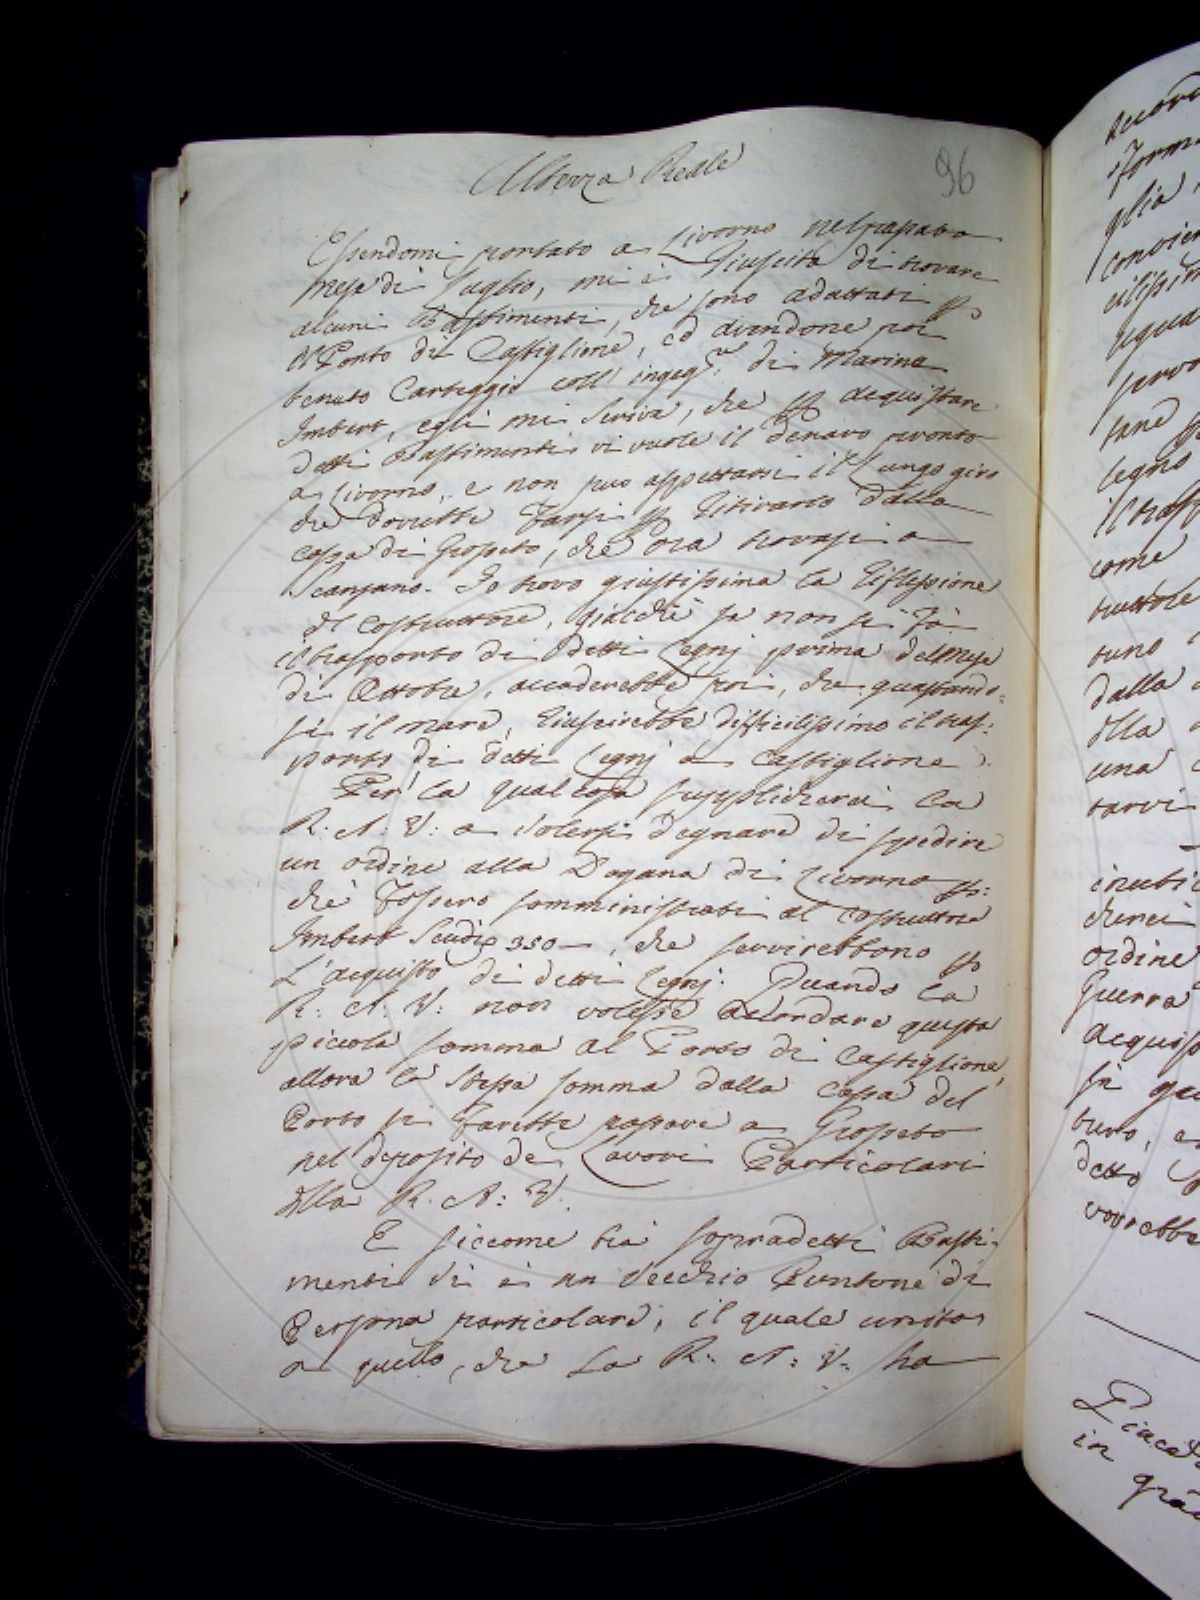 96
Altezza Reale
Essendomi portato a Livorno nel passato
Mese di Luglio, mi è riuscito di trovare
alcuni Bastimenti, che sono adattati p
il Porto di Castiglione, ed avendone poi
tenuto Carteggio coll' ingeg.re di Marina
Imbert, egli mi scrive, che p acquistare
detti Bastimenti vi vuole il denaro pronto
a Livorno, e non può aspettarsi il lungo giro
che dovrebbe farsi p ritirarlo dalla
Cassa di Grosseto, che ora trovasi a
Scansano. Io trovo giustissima la riflessione
del Costruttore, giacchè se non si fà
il trasporto di detti Legnj prima del Mese
di Ottobre, accaderebbe poi, che guastando-
si il mare, riuscirebbe difficilissimo il tras:
porto di detti Legnj a Castiglione.
Per la qual cosa supplicherei la
R: A: V: a volersi degnare di spedire
un ordine alla Dogana di Livorno p:
chè fossero somministrati al Costruttore
Imbert Scudi 350 —, che servirebbono p
L'acquisto di detti Legnj. Quando la
R: A: V: non volesse accordare questa
piccola somma al Porto di Castiglione,
allora la stessa somma dalla Cassa del
Porto si farebbe passare a Grosseto
nel deposito de Lavori Particolari
della R. A: V.
E siccome trà sopradetti Basti-
menti vi è un vecchio Puntone di
Persona particolare, il quale unito
a quello, che La R: A: V: ha
glia,
tane
legno
come
dalla
una
tarvi
ordine
Guerra
detto
in